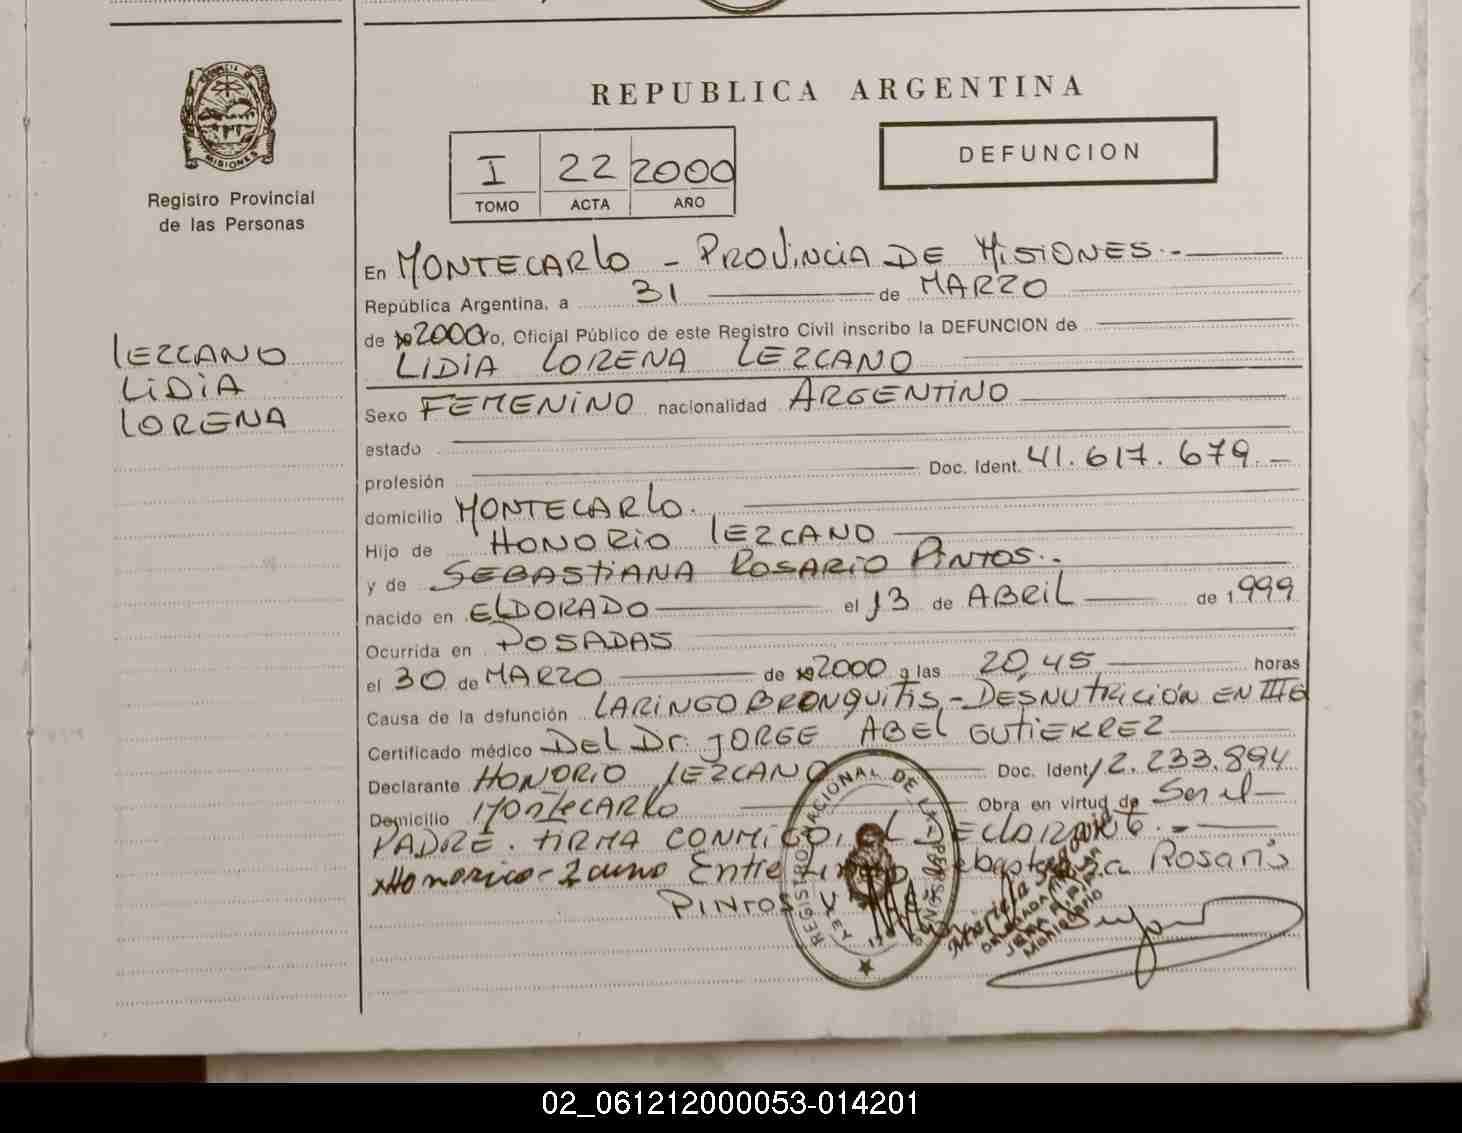 PROVINCIA DE
MISIONES
Registro Provincial
de las Personas
LEZCANO
LIDIA
LORENA
REPUBLICA ARGENTINA
I 22 2000
TOMO ACTA AÑO
DEFUNCION
En MONTECARLO - PROVINCIA DE MISIONES.-
República Argentina, a 31 de MARZO
de 2000 yo, Oficial Público de este Registro Civil inscribo la DEFUNCION de
LIDIA LORENA LEZCANO
Sexo FEMENINO nacionalidad ARGENTINO
estado
profesión Doc. Ident. 41.617.679.-
domicilio MONTECARLO.
Hijo de HONORIO LEZCANO
y de SEBASTIANA ROSARIO PINTOS.-
nacido en ELDORADO el 13 de ABRIL de 1999
Ocurrida en POSADAS
el 30 de MARZO de 2000 a las 20,45 horas
Causa de la defunción LARINGO BRONQUITIS,- DESNUTRICIÓN EN III G
Certificado médico DEL Dr. JORGE ABEL GUTIERREZ
Declarante HONORIO LEZCANO Doc. Ident. 12.233.894
Domicilio MONTECARLO Obra en virtud de Ser el
PADRE. FIRMA CONMIGO, EL DECLARANTE.-
Entre Sebastiana Rosario
PINTOS
REGISTRO NACIONAL DE LAS PERSONAS
02_061212000053-014201